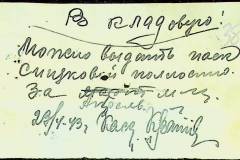 В кладовую!
Можно выдать паек
Слизковой полностью.
За апрель м-ц.
29/4-43.